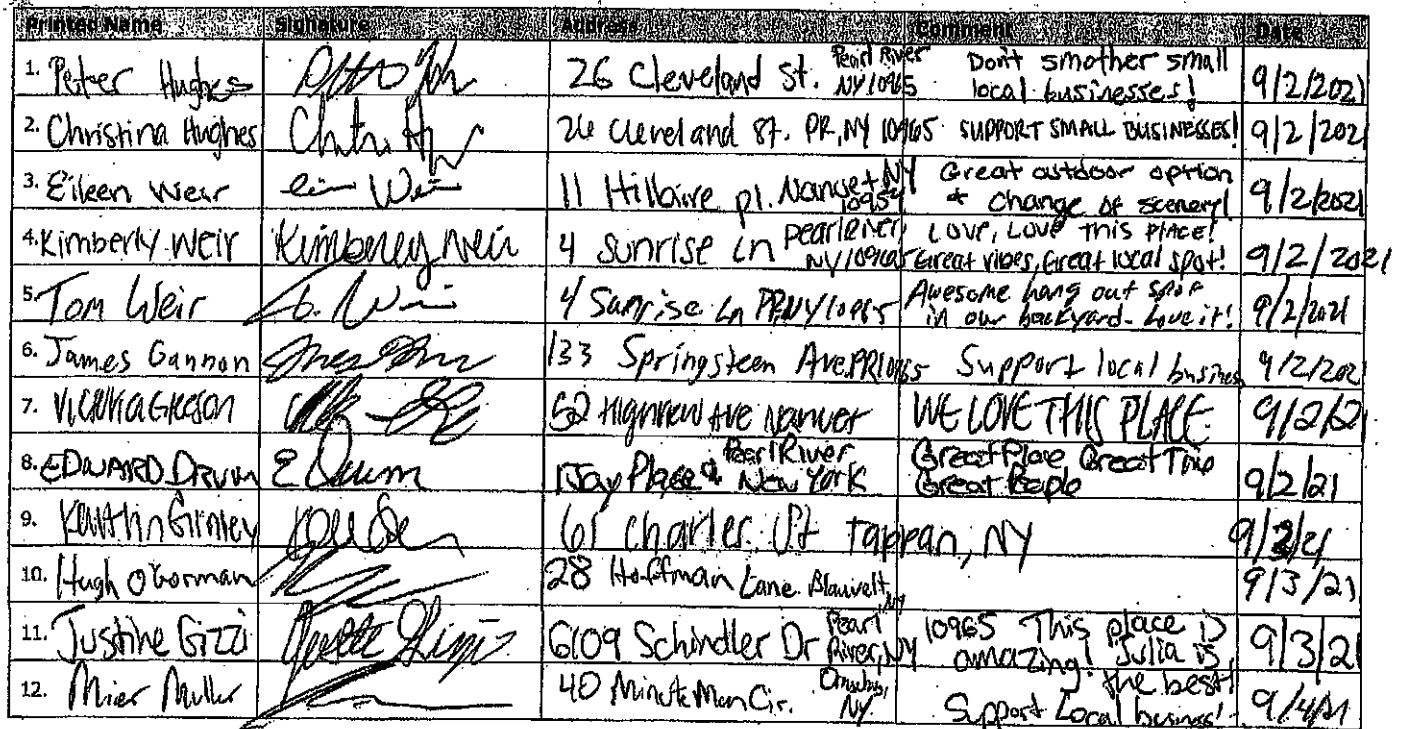 Printed Name Signature Address Comment Date
1. Peter Hughes 26 Cleveland St. Pearl River NY 10965 Don't smother small local businesses! 9/2/2021
2. Christina Hughes 26 Cleveland St. PR, NY 10965 SUPPORT SMALL BUSINESSES! 9/2/2021
3. Eileen Weir 11 Hillaire pl. Nanuet NY 10954 Great outdoor option + change of scenery! 9/2/2021
4. Kimberly Weir Kimberley Weir 4 Sunrise Ln Pearl River, NY 10965 LOVE, LOVE THIS PLACE! Great vibes, Great local spot! 9/2/2021
5. Tom Weir 4 Sunrise Ln PR NY 10965 Awesome hang out spot in our backyard - Love it! 9/2/2021
6. James Gannon 133 Springsteen Ave. PR 10965 Support local business 9/2/2021
7. 52 Highview Ave Nanuet WE LOVE THIS PLACE 9/2/21
8. EDWARD DRUM E Drum 1 Jay Place Pearl River New York Great Place Great Time Great People 9/2/21
9. Kaitlin 61 Charles Ct Tappan, NY
10. Hugh O'Gorman 28 Hoffman Lane Blauvelt, NY 9/3/21
11. Justine Gizzi 6109 Schindler Dr Pearl River, NY 10965 This place is amazing! Julia is the best! 9/3/21
12. Muller 40 Minute Man Cir. NY. Support Local business! 9/4/21